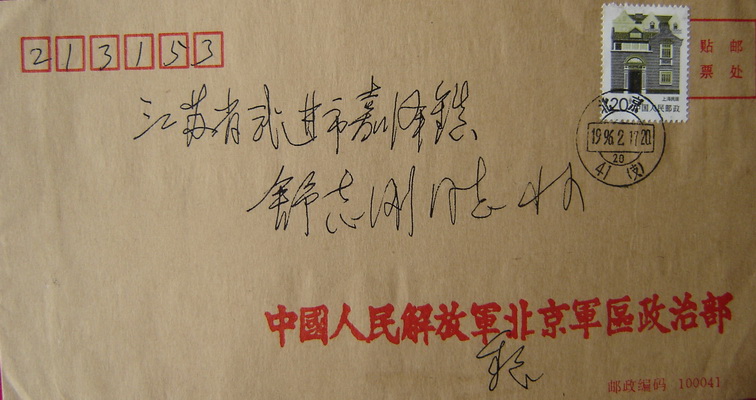 213153
贴邮
票处
上海民居
20中国人民邮政
北京
1996.2.17.20
20
41 (支)
江苏省武进市嘉泽镇
舒志刚同志收
中國人民解放軍北京軍區政治部
邮政编码 100041